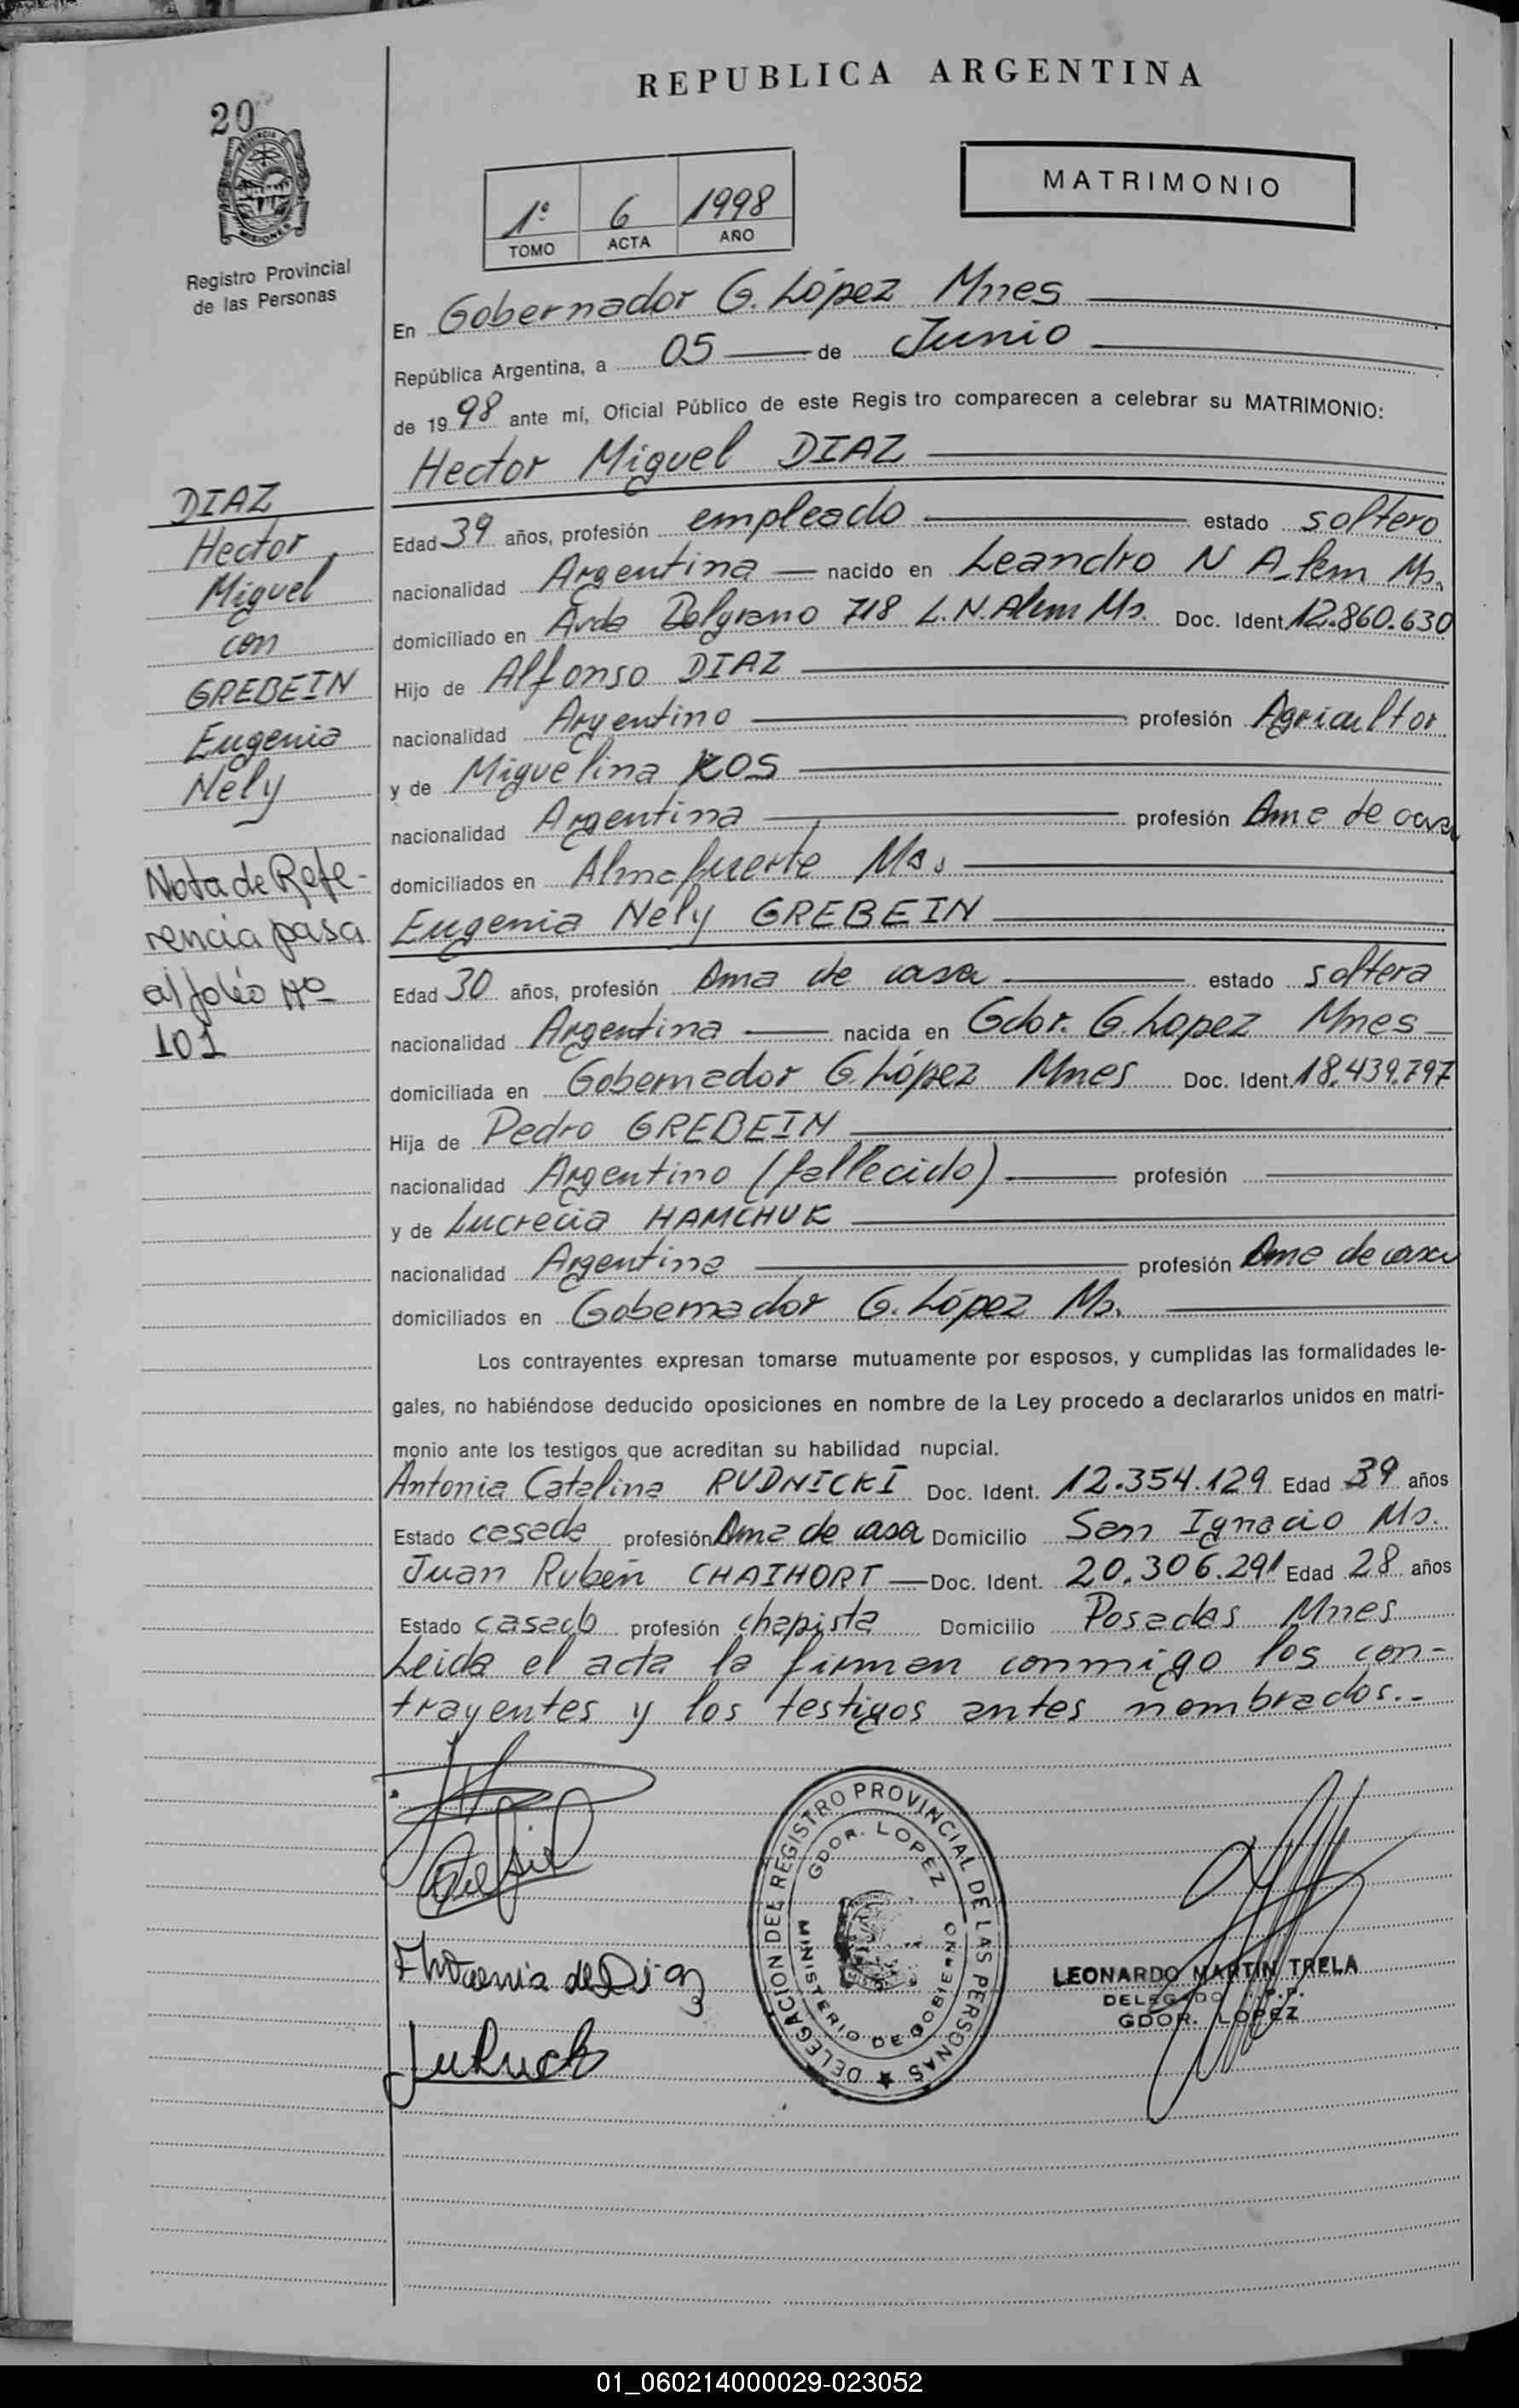 REPUBLICA ARGENTINA
20
MATRIMONIO
1º 6 1998
TOMO ACTA AÑO
PROVINCIA
MISIONES
Registro Provincial
de las Personas
En Gobernador G. López Mnes
República Argentina, a 05 de Junio
de 1998 ante mí, Oficial Público de este Regis tro comparecen a celebrar su MATRIMONIO:
Hector Miguel DIAZ
DIAZ
Hector
Miguel
con
GREBEIN
Eugenia
Nely
Nota de Refe-
rencia pasa
al folio Nº
101
Edad 39 años, profesión empleado estado soltero
nacionalidad Argentina nacido en Leandro N Alem Ms.
domiciliado en Avda Belgrano 718 L.N.Alem Ms. Doc. Ident. 12.860.630
Hijo de Alfonso DIAZ
nacionalidad Argentino profesión Agricultor
y de Miguelina KOS
nacionalidad Argentina profesión Ama de casa
domiciliados en Almafuerte Ms.
Eugenia Nely GREBEIN
Edad 30 años, profesión Ama de casa estado soltera
nacionalidad Argentina nacida en Gdor. G. Lopez Mnes
domiciliada en Gobernador G. López Mnes Doc. Ident. 18.439.797
Hija de Pedro GREBEIN
nacionalidad Argentino (fallecido) profesión
y de Lucrecia HAMCHUK
nacionalidad Argentina profesión Ama de casa
domiciliados en Gobernador G. López Ms.
Los contrayentes expresan tomarse mutuamente por esposos, y cumplidas las formalidades le-
gales, no habiéndose deducido oposiciones en nombre de la Ley procedo a declararlos unidos en matri-
monio ante los testigos que acreditan su habilidad nupcial.
Antonia Catalina RUDNICKI Doc. Ident. 12.354.129 Edad 39 años
Estado casada profesión Ama de casa Domicilio San Ignacio Ms.
Juan Rubén CHAIHORT Doc. Ident. 20.306.291 Edad 28 años
Estado casado profesión chapista Domicilio Posadas Mnes
Leida el acta la firman conmigo los con-
trayentes y los testigos antes nombrados.-
DELEGACION DEL REGISTRO PROVINCIAL DE LAS PERSONAS
GDOR. LOPEZ
MINISTERIO DE GOBIERNO
de Diaz
LEONARDO MARTIN TRELA
DELEGADO R.P.P.
GDOR. LOPEZ
01_060214000029-023052